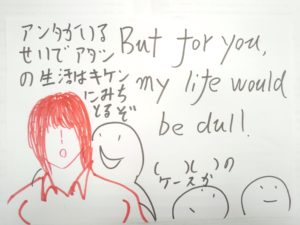 アンタがいる
せいでアタシ
の生活はキケン
にみち
とるぞ
But for you,
my life would
be dull.
(　)(　)の
ケースか